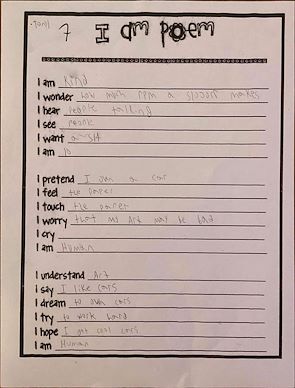 Tony 7 I am poem
I am Kind
I wonder how much rpm a makes
I hear people talking
I see people
I want
I am 10
I pretend I am a car
I feel the paper
I touch the paper
I worry that my Art may be bad
I cry
I am Human
I understand Art
I say I like cars
I dream to own cars
I try to work hard
I hope I get cool cars
I am Human